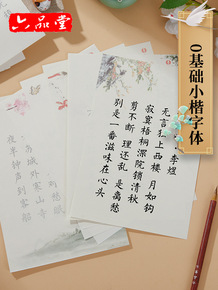 六品堂
0基础小楷字体
李煜
无言独上西楼 月如钩
寂寞梧桐深院锁清秋
剪不断 理还乱 是离愁
别是一番滋味在心头
愁眠
姑苏城外寒山寺
夜半钟声到客船